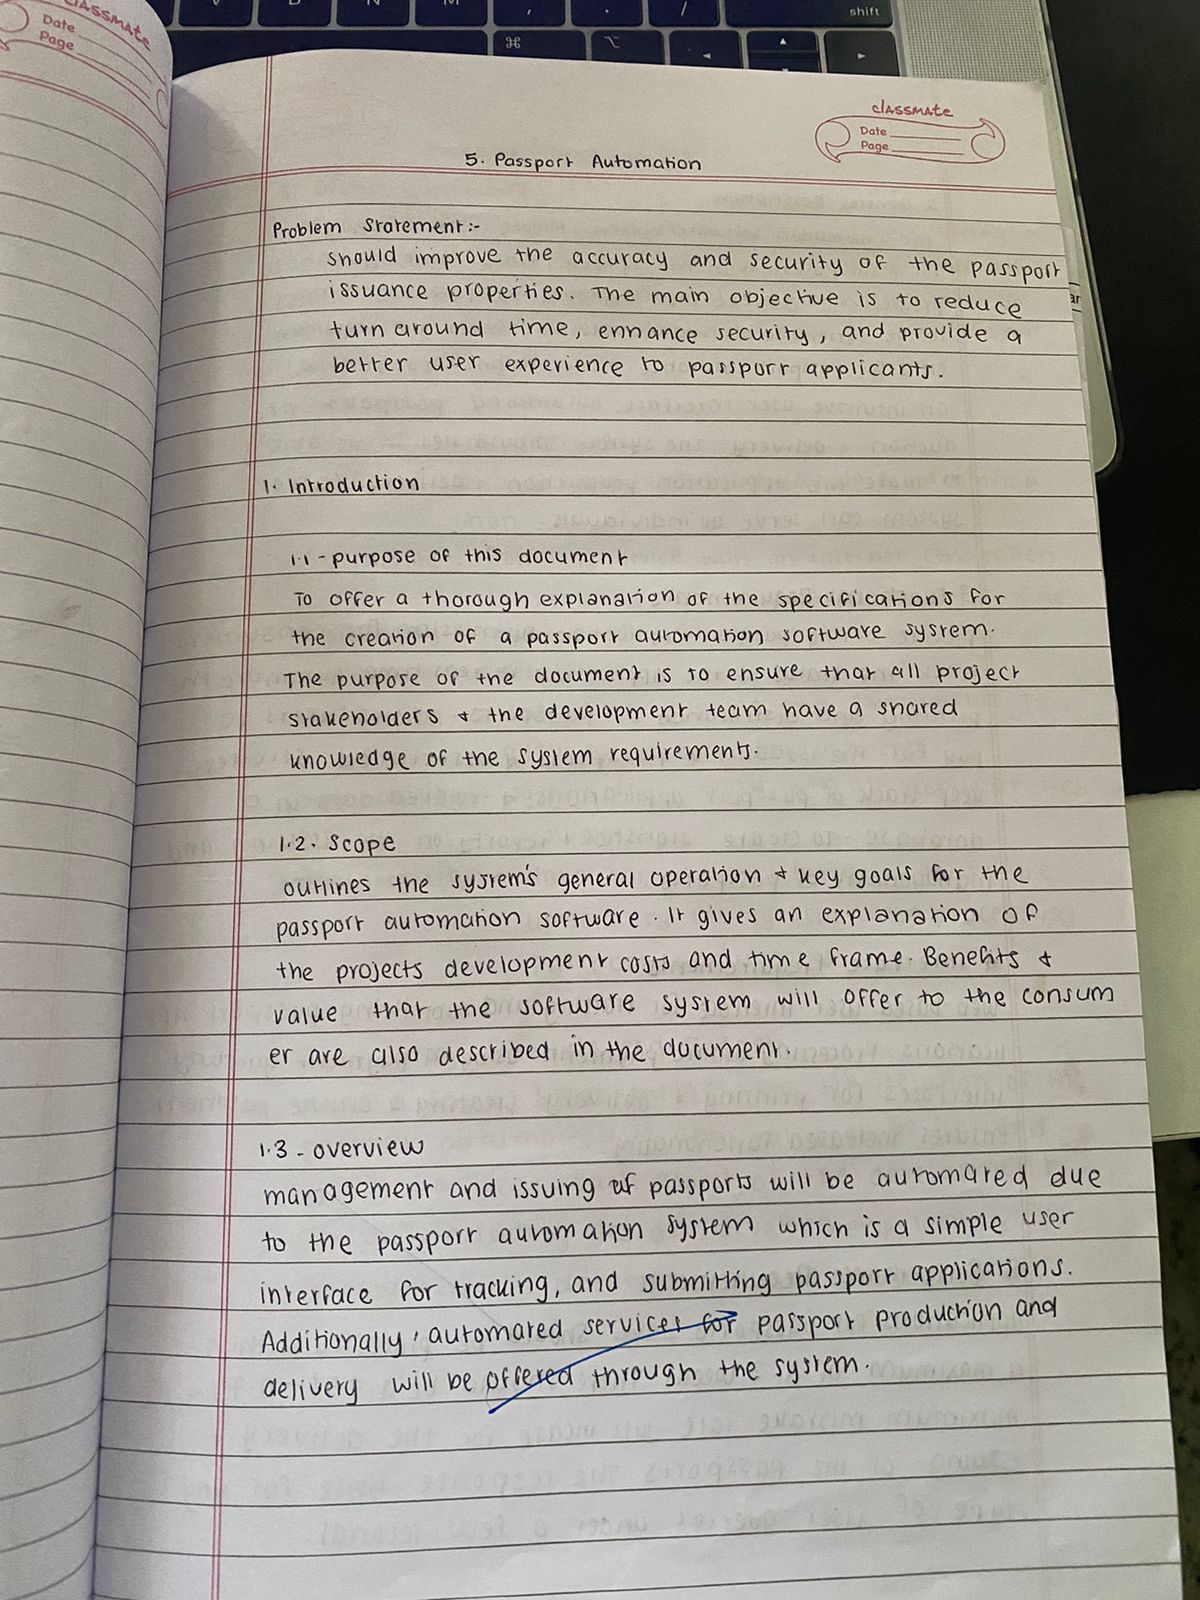 classmate
Date
Page
shift
⌘
⌥
classmate
Date
Page
5. Passport Automation
Problem Statement:-
should improve the accuracy and security of the passport
issuance properties. The main objective is to reduce
turn around time, enhance security, and provide a
better user experience to passport applicants.
1. Introduction
1.1 - purpose of this document
To offer a thorough explanation of the specifications for
the creation of a passport automation software system.
The purpose of the document is to ensure that all project
stakeholders & the development team have a shared
knowledge of the system requirements.
1.2. Scope
outlines the system's general operation & key goals for the
passport automation software. It gives an explanation of
the projects development costs and time frame. Benefits &
value that the software system will offer to the consum
er are also described in the document.
1.3 - overview
management and issuing of passports will be automated due
to the passport automation system which is a simple user
interface for tracking, and submitting passport applications.
Additionally, automated services for passport production and
delivery will be offered through the system.